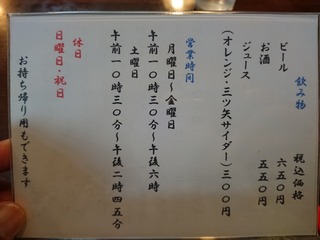 飲み物　税込価格
ビール　六五〇円
お酒　五五〇円
ジュース
（オレンジ・三ツ矢サイダー）三〇〇円
営業時間
月曜日～金曜日
午前一〇時三〇分～午後六時
土曜日
午前一〇時三〇分～午後二時四五分
休日
日曜日・祝日
お持ち帰り用もできます